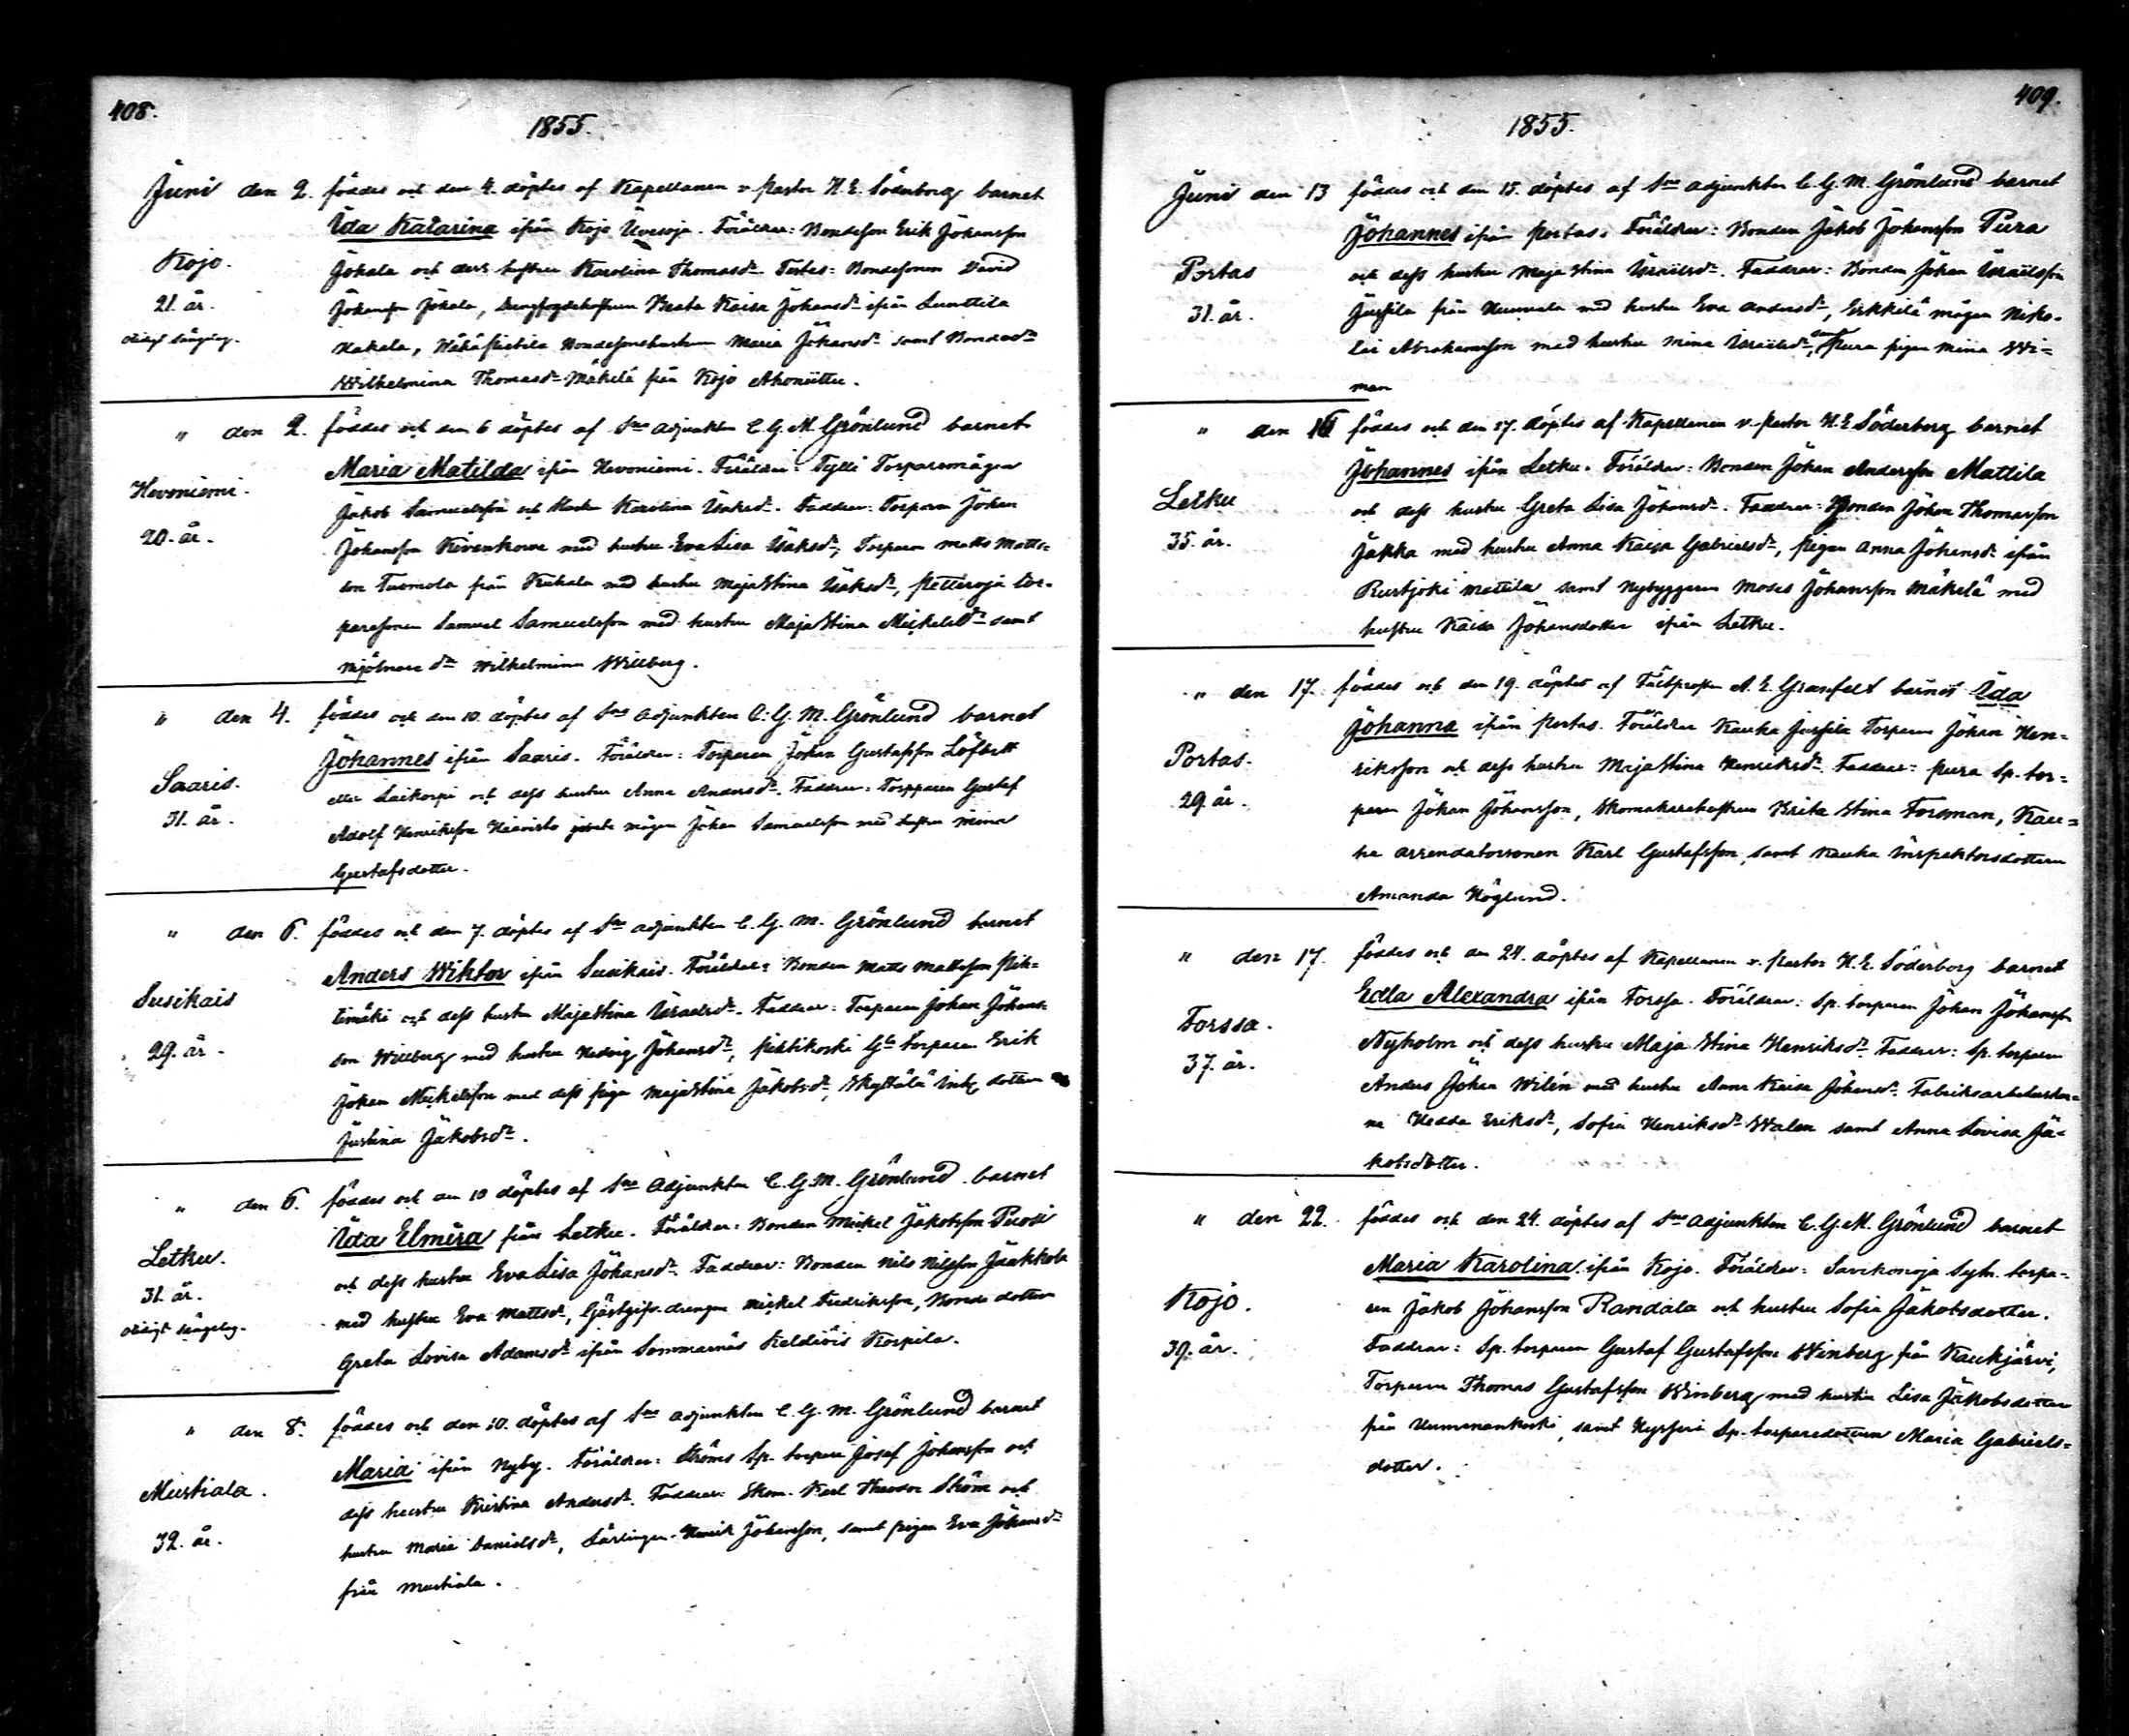 408.
1855.
Juni den 2. föddes och den 4. döptes af Kapellanen v. Pastor H. E. Söderborg barnet
Ida Katarina ifrån Kojo Uvesoja. Föräldrar: Bondeson Erik Johansson
Kojo.
Jokala och dess hustru Karolina Thomasdr Testes: Bondesonen David
21. år.
Johansson Jokala, Beata Kaisa Johansdr ifrån Lunttila
Kakela, Bondesonshustrun Maria Johansdr samt Bondedr
Wilhelmina Thomasdr Mäkelä från Kojo Ahoniittu.
" den 2. föddes och den 6 döptes af Sne Adjunkten C. G. M. Grönlund barnet
Maria Matilda ifrån Hevoniemi. Föräldrar: Tylli Torparemågen
Hevoniemi.
Jakob Samuelsson och Hustru Karolina Isaksdr. Faddrar: Torparen Johan
20. år.
Johansson med hustru Eva Lisa Isaksdr, Torparen Matts Matts=
son Tuomola från Kukala med hustru Maja Stina Isaksdr, Petteroja tor=
paresonen Samuel Samuelsson med hustru Maja Stina Mickelsdr samt
Mjölnare dr Wilhelmina Willberg.
" den 4. föddes och den 10. döptes af Sne Adjunkten C. G. M. Grönlund barnet
Johannes ifrån Saaris. Föräldrar: Torparen Johan Gustafsson Löfbett
Saaris.
eller Laikorpi och dess hustru Anna Andersdr. Faddrar: Torpparen Gustaf
31. år.
Adolf Henriksson mågen Johan Samuelsson med hustru Mina
Gustafsdotter.
" den 6. föddes och den 7. döptes af Sne Adjunkten C. G. M. Grönlund barnet
Anders Wiktor ifrån Susikais. Föräldrar: Bonden Matts Mattsson Pik=
Susikais
timäki och dess hustru Maja Stina Israelsdr. Faddrar: Torparen Johan Johans=
29. år.
son Willberg med hustru Hedvig Johansdr, torparen Erik
Johan Mickelsson med dess piga Maja Stina Jakobsdr, Skyttälä Inh. dotter
Justina Jakobsdr.
" den 6. föddes och den 10 döptes af Sne Adjunkten C. G. M. Grönlund barnet
Ida Elmira från Letku. Föräldrar: Bonden Mickel Jakobsson Puosi
Letku.
och dess hustru Eva Lisa Johansdr. Faddrar: Bonden Nils Nilsson Jaakkola
31. år.
med hustru Eva Mattsdr, Gästgifv. drengen Mickel Fredriksson, Bonde dotter
Greta Lovisa Adamsdr ifrån Sommarnäs Kaldiöis Korpila.
" den 8. föddes och den 10. döptes af Sne Adjunkten C. G. M. Grönlund barnet
Maria ifrån Nyby. Föräldrar: Ströms Sp. torpare Josef Johansson och
Mustiala.
dess hustru Kristina Andersdr. Faddrar: Skom. Karl Theodor Ström och
32. år.
hustru Maria Danielsdr, Lärlingen Henrik Johansson, samt pigan Eva Johansdr
från Mustiala.
409.
1855.
Juni den 13 föddes och den 15. döptes af Sne Adjunkten C. G. M. Grönlund barnet
Johannes ifrån Portas. Föräldrar: Bonden Jakob Johansson Pura
Portas
och dess hustru Maja Stina Israelsdr. Faddrar: Bonden Johan Israelsson
31. år.
Jussila från med hustru Eva Andersdr, Erkkilä mågen Niko=
lai Abrahamsson med hustru Mina Israelsdr, samt Pura pigan Miina Wi=
man
" den 16 föddes och den 17. döptes af Kapellanen v. Pastor H. E. Söderborg barnet
Johannes ifrån Letku. Föräldrar: Bonden Johan Andersson Mattila
Letku
och dess hustru Greta Lisa Johansdr. Faddrar: Bonden Johan Thomasson
35. år.
Jakka med hustru Anna Kaisa Gabrielsdr, Pigan Anna Johansdr ifrån
Ruotjoki Mattila samt Nybyggaren Moses Johansson Mäkelä med
hustru Kaisa Johansdotter ifrån Letku.
" den 17. föddes och den 19. döptes af Fältprosten A. E. Granfelt barnet Ida
Johanna ifrån Portas. Föräldrar Kauka Jussila Torparen Johan Hen=
Portas.
riksson och dess hustru Maja Stina Henriksdr. Faddrar: Pura Sp. tor=
29 år.
paren Johan Johansson, Skomakarehustrun Brita Stina Forsman, Kau=
ka arrendatorsonen Karl Gustafsson, samt Kauka Inspektorsdottern
Amanda Höglund.
" den 17. föddes och den 24. döptes af Kapellanen v. Pastor H. E. Söderborg barnet
Edla Alexandra ifrån Forssa. Föräldrar: Sp. torparen Johan Johansson
Forssa.
Nyholm och dess hustru Maja Stina Henriksdr. Faddrar: Sp. torparen
37. år.
Anders Johan Wilén med hustru Anna Kaisa Johansdr. Fabriksarbeterskor=
na Hedda Eriksdr, Sofia Henriksdr Walen samt Anna Lovisa Ja=
kobsdotter.
" den 22. föddes och den 24. döptes af Sne Adjunkten C. G. M. Grönlund barnet
Maria Karolina ifrån Kojo. Föräldrar: Savikonoja Sytn. torpa=
Kojo.
ren Jakob Johansson Randala och hustru Sofia Jakobsdotter.
39. år.
Faddrar: Sp. torparen Gustaf Gustafsson Winberg från Kaukjärvi,
Torparen Thomas Gustafsson Winberg med hustru Lisa Jakobsdotter
från Nummenkoski, samt Sp. torparedottern Maria Gabriels=
dotter.